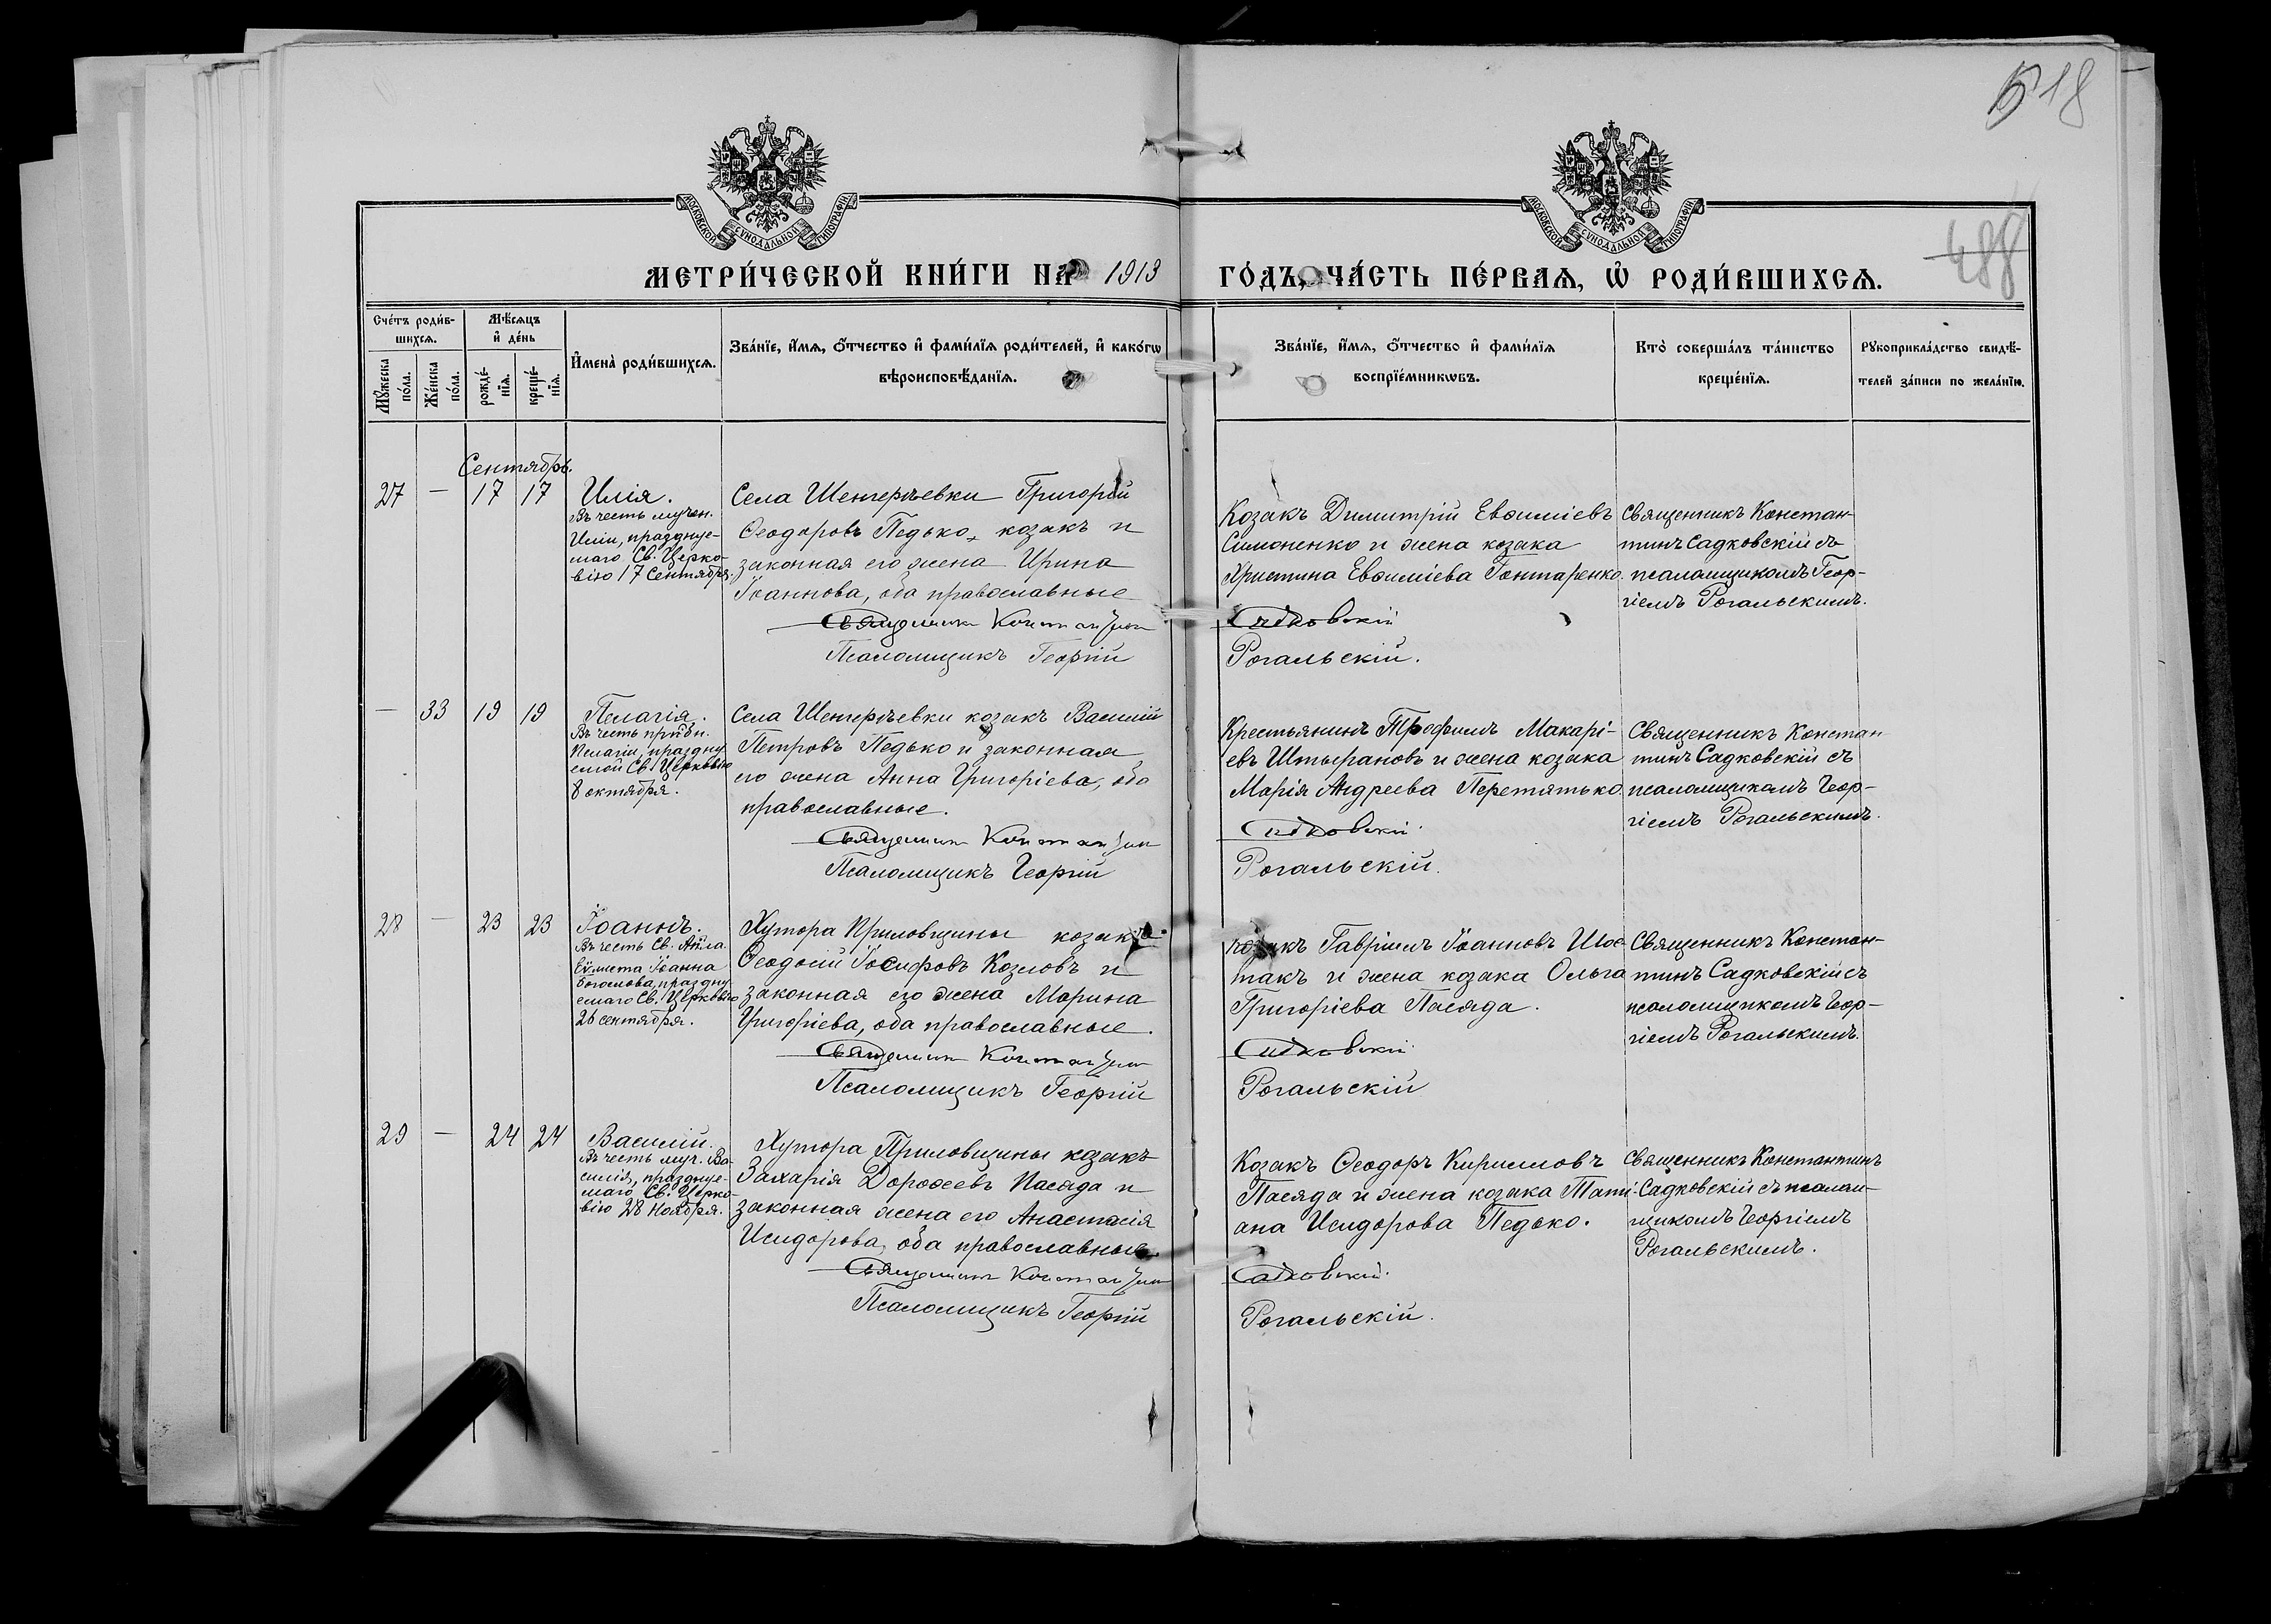 18
488
МОСКОВСКОЙ СѴНОДАЛЬНОЙ ТИПОГРАФІИ
МОСКОВСКОЙ СѴНОДАЛЬНОЙ ТИПОГРАФІИ
МЕТРИ́ЧЕСКОЙ КНИ́ГИ НА 1913
ГО́ДЪ, ЧА́СТЬ ПЕ́РВАѦ, Ѡ҆ РОДИ́ВШИХСѦ.
Сче́тъ роди́в-
шихсѧ.
Мꙋ́жеска по́ла.
Же́нска по́ла.
Мѣ́сѧцъ
и҆ де́нь
рожде́-
нїѧ.
креще́-
нїѧ.
И҆мена̀ роди́вшихсѧ.
Зва́нїе, и҆́мѧ, ѻ҆́тчество и҆ фами́лїѧ роди́телей, и҆ како́гѡ
вѣроисповѣ́данїѧ.
Зва́нїе, и҆́мѧ, ѻ҆́тчество и҆ фами́лїѧ
воспрїе́мникѡвъ.
Кто̀ соверша́лъ та́инство
креще́нїѧ.
Рꙋкоприкла́дство свидѣ́-
телей за́писи по жела́нїю.
Сентябрь.
27 — 17 17
Илія.
Въ честь мучен.
Иліи, празднуе-
маго Св. Церко-
вію 17 Сентября.
Села Шенгерѣевки Григорій
Ѳеодоровъ Педько, козакъ и
законная его жена Ирина
Іоаннова, оба православные
Священникъ Константинъ
Псаломщикъ Георгій
Козакъ Димитрій Евѳиміевъ
Симоненко и жена козака
Христина Евѳиміева Гонтаренко.
Садковскій
Рогальскій.
Священникъ Констан-
тинъ Садковскій съ
псаломщикомъ Геор-
гіемъ Рогальскимъ.
— 33 19 19
Пелагія.
Въ честь прпдбн.
Пелагіи, праздну
емой Св. Церковію
8 октября.
Села Шенгерѣевки козакъ Василій
Петровъ Педько и законная
его жена Анна Григоріева, оба
православные.
Священникъ Константинъ
Псаломщикъ Георгій
Крестьянинъ Трофимъ Макарі-
евъ Штыфановъ и жена козака
Марія Андреева Перетятько.
Садковскій.
Рогальскій.
Священникъ Констан
тинъ Садковскій съ
псаломщикомъ Геор-
гіемъ Рогальскимъ.
28 — 23 23
Іоаннъ.
Въ честь Св. Апла.
Еѵлиста Іоанна
Богослова, праздну
емаго Св. Церковію
26 сентября.
Хутора Приловщины козакъ
Ѳеодосій Іосифовъ Козловъ и
законная его жена Марина
Григоріева, оба православные.
Священникъ Константинъ
Псаломщикъ Георгій
козакъ Гавріилъ Іоанновъ Шос-
такъ и жена козака Ольга
Григоріева Пасяда.
Садковскій.
Рогальскій
Священникъ Констан-
тинъ Садковскій съ
псаломщикомъ Геор-
гіемъ Рогальскимъ.
29 — 24 24
Василій.
Въ честь муч. Ва-
силія, празднуе-
маго Св. Церко-
вію 28 Ноября.
Хутора Приловщины козакъ
Захарія Дороѳеевъ Пасяда и
законная жена его Анастасія
Исидорова, оба православные.
Священникъ Константинъ
Псаломщикъ Георгій
Козакъ Ѳеодоръ Кирилловъ
Пасяда и жена козака Таті-
ана Исидорова Педько.
Садковскій.
Рогальскій.
Священникъ Константинъ
Садковскій съ псалом-
щикомъ Георгіемъ
Рогальскимъ.